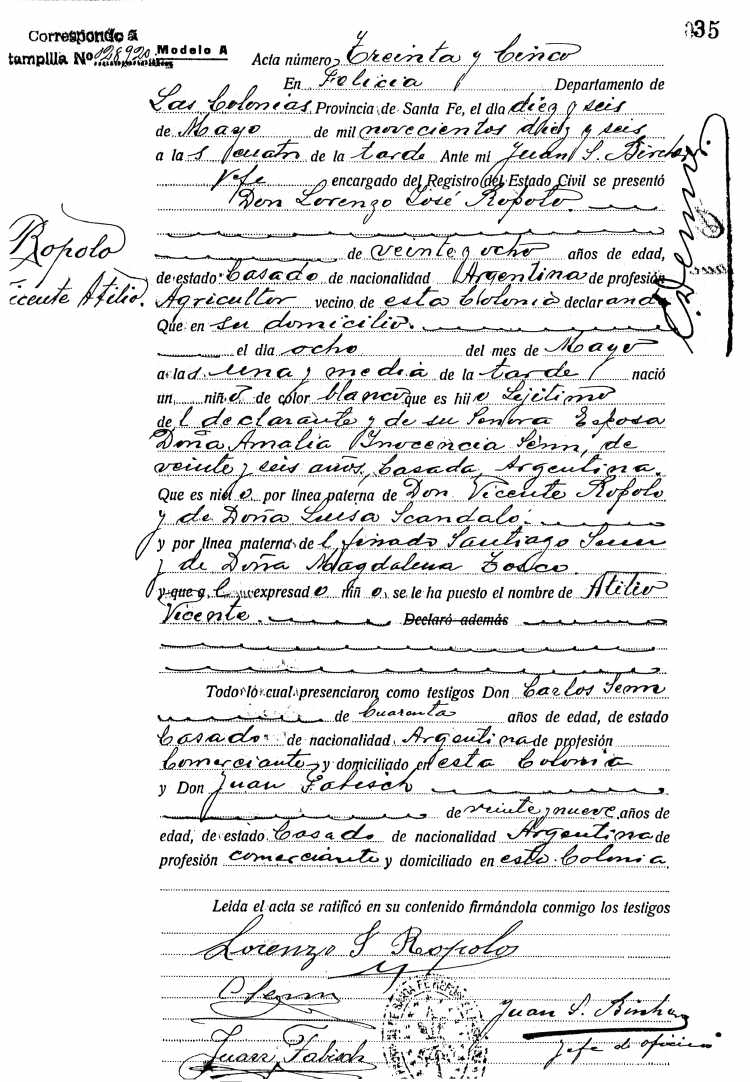 035
Correspondo á
tampilla No 028920 Modelo A
Acta número Treinta y Cinco
En Felicia Departamento de
Las Colonias Provincia de Santa Fe, el dia diez y seis
de Mayo de mil novecientos diez y seis
a las cuatro de la tarde Ante mi Juan S.
Jefe encargado del Registro del Estado Civil se presentó
Don Lorenzo José Ropolo
de veinte y ocho años de edad,
Ropolo
de estado Casado de nacionalidad Argentina de profesión
icente Atilio.
Agricultor vecino de esta Colonia declarando
Que en su domicilio.
el dia ocho del mes de Mayo
a las una y media de la tarde nació
un niño de color blanco que es hijo Lejitimo
del declarante y de su Señora Esposa
Doña Amalia Inocencia Senn, de
veinte y seis años, Casada, Argentina.
Que es nieto por linea paterna de Don Vicente Ropolo
y de Doña Luisa Scandalo
y por linea materna del finado Santiago Senn
y de Doña Magdalena Tosco
y que al expresado niño se le ha puesto el nombre de Atilio
Vicente. Declaró además
Todo lo cual presenciaron como testigos Don Carlos Senn
de Cuarenta años de edad, de estado
Casado de nacionalidad Argentina de profesión
Comerciante y domiciliado en esta Colonia
y Don Juan Fabisch
de veinte y nueve años de
edad, de estado Casado de nacionalidad Argentina de
profesión comerciante y domiciliado en esta Colonia
Leida el acta se ratificó en su contenido firmándola conmigo los testigos
Lorenzo J Ropolo
C Senn
Juan S.
Juan Fabisch
Jefe de oficina